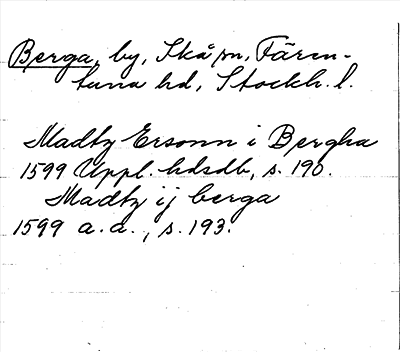 Berga, by, Skå sn, Fären-
tuna hd, Stockh. l.
Madtz Ersonn i Bergha
1599 Uppl. hdsdb, s. 190.
Madtz ij berga
1599 a. a., s. 193.